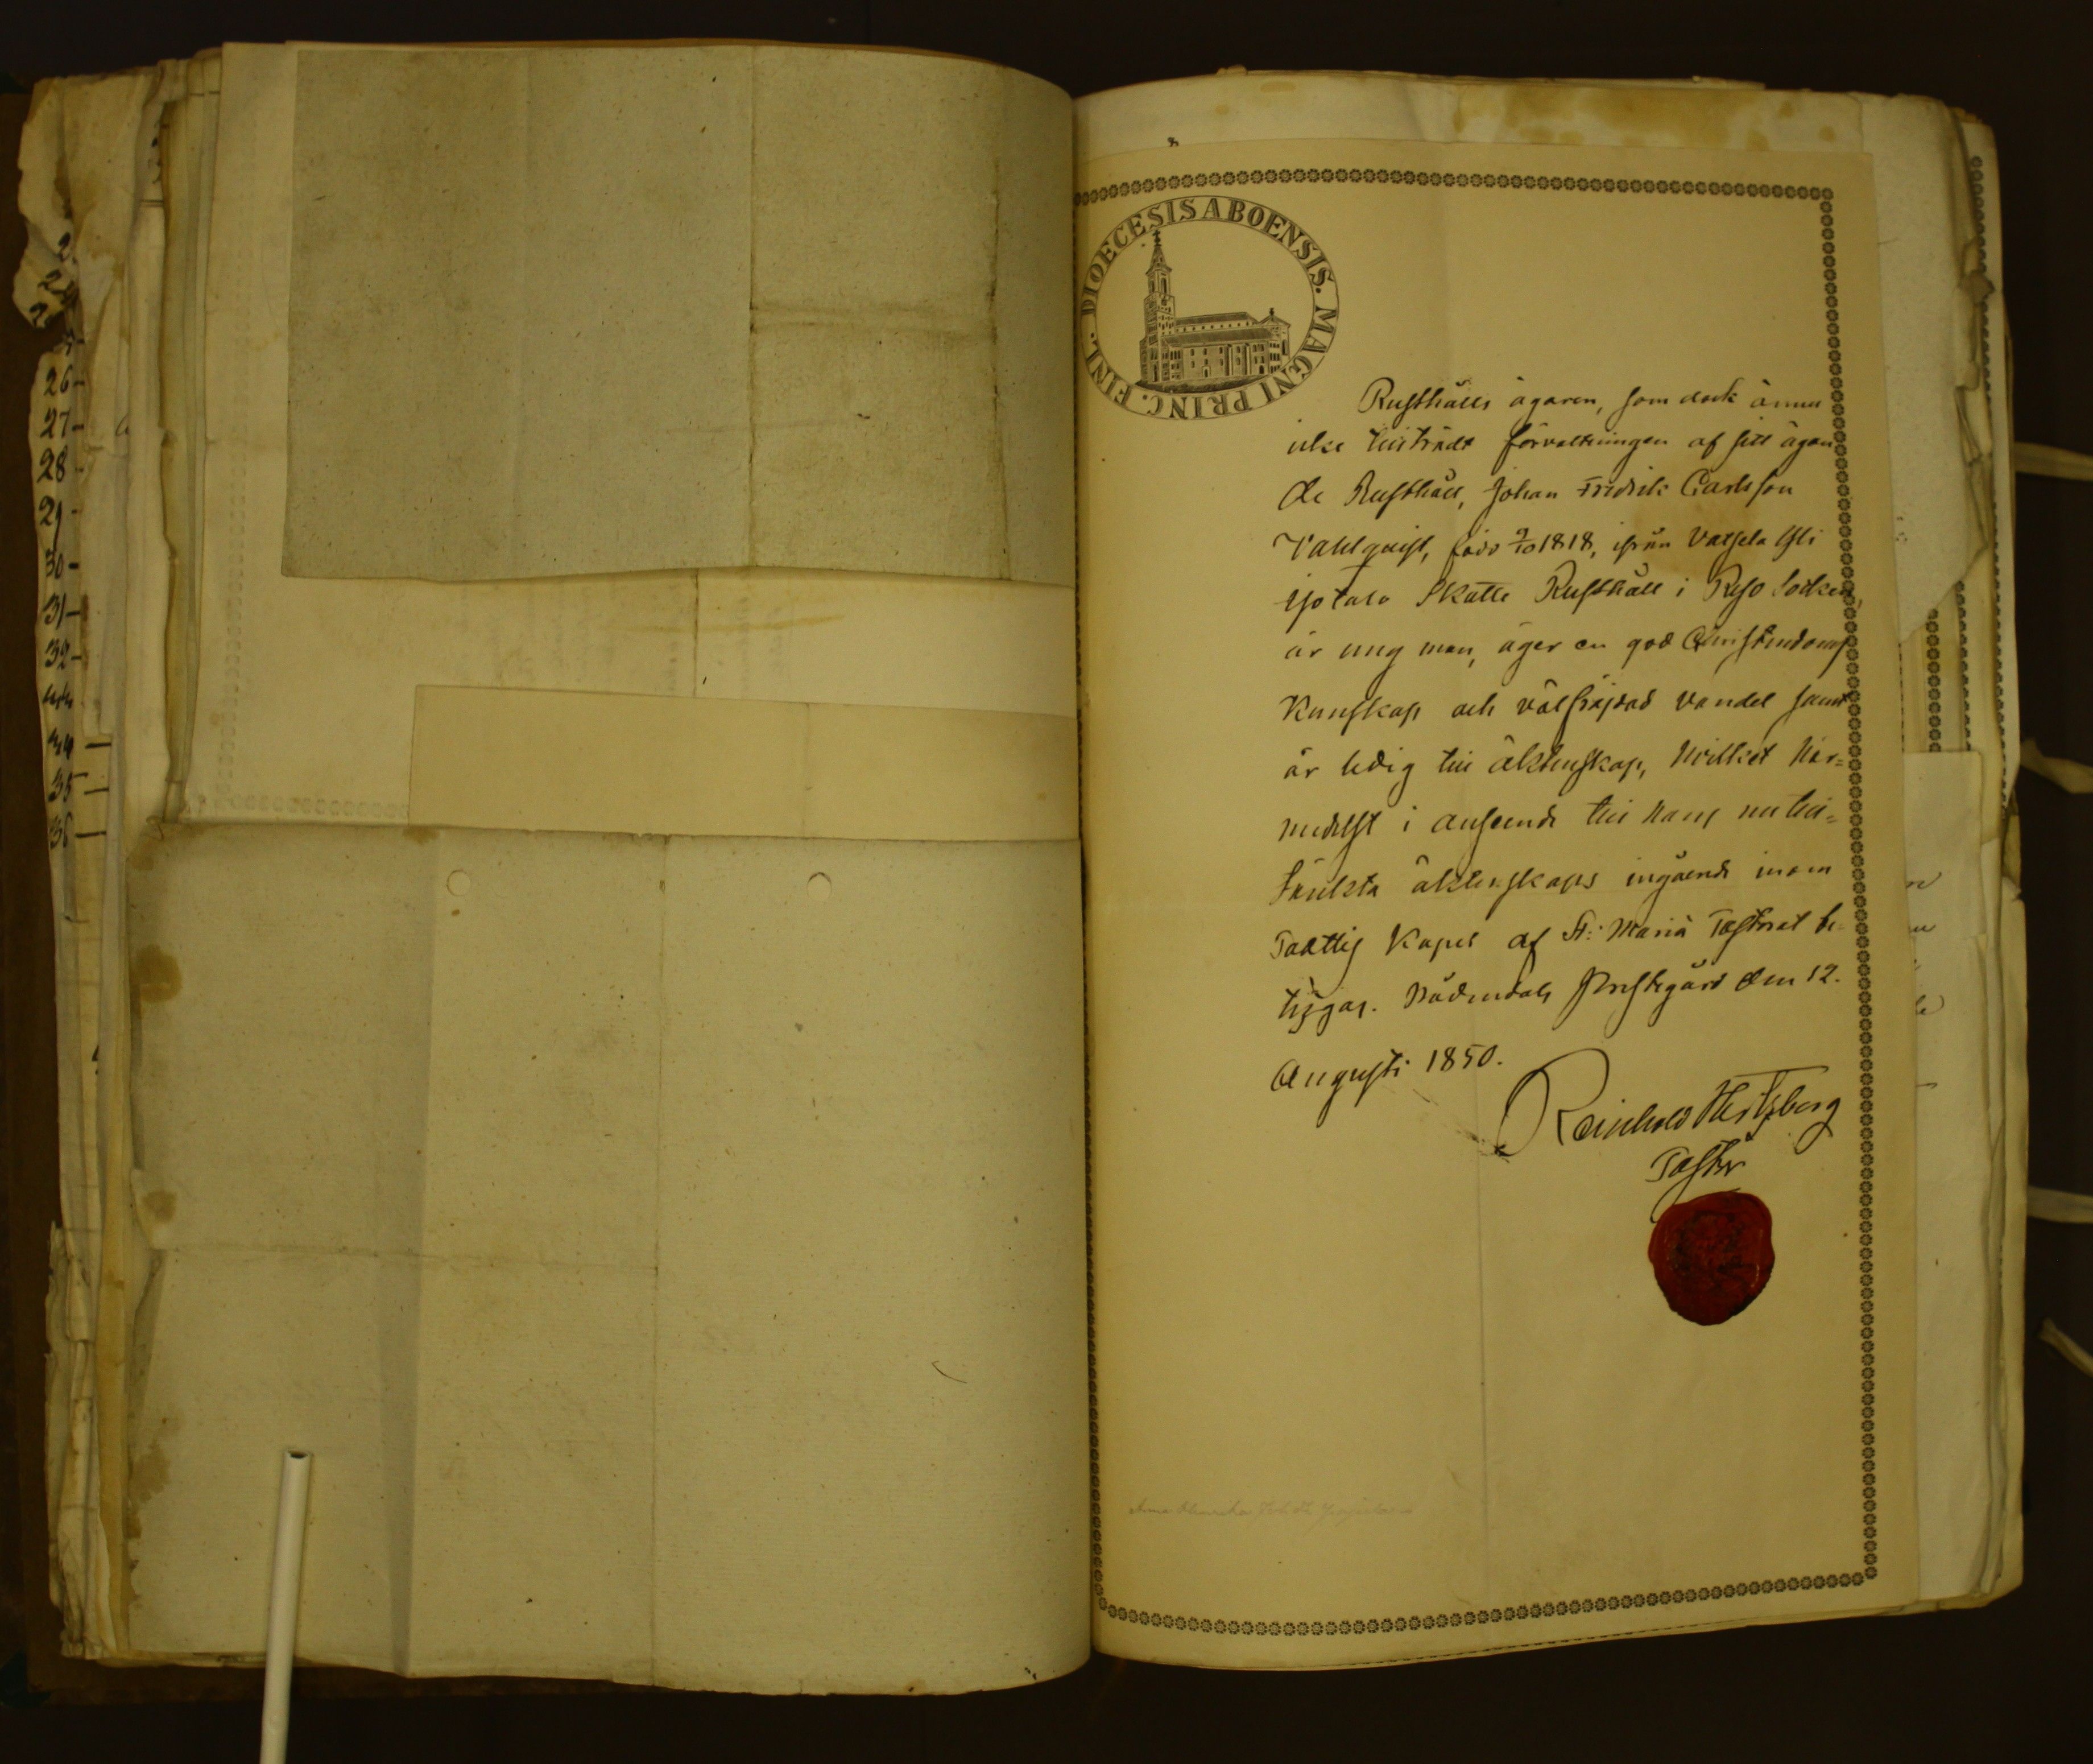 2
24
2
26-
27-
28-
29-
30-
31-
32-
34-
35-
36-
DIOECESIS ABOENSIS. MAGNI PRINC. FINL.
Rusthålls ägaren, som dock ännu
icke tillträdt förvaltningen af sitt ägan
de Rusthåll, Johan Fredrik Carlsson
Vahlquist, född 9/10 1818, ifrån
Skatte Rusthåll i Reso Socken,
är ung man, äger en god Christendoms
Kunskap och välfräjdad vandel samt
är ledig till äktenskap, hvilket här=
medelst i anseende till hans nu till=
tänkta äktenskaps ingående inom
Paattis Kapel af St: Mariæ Pastorat be
tygas. Nådendals Prestegård den 12.
Augusti 1850.
Reinhold Hertzberg
Pastor